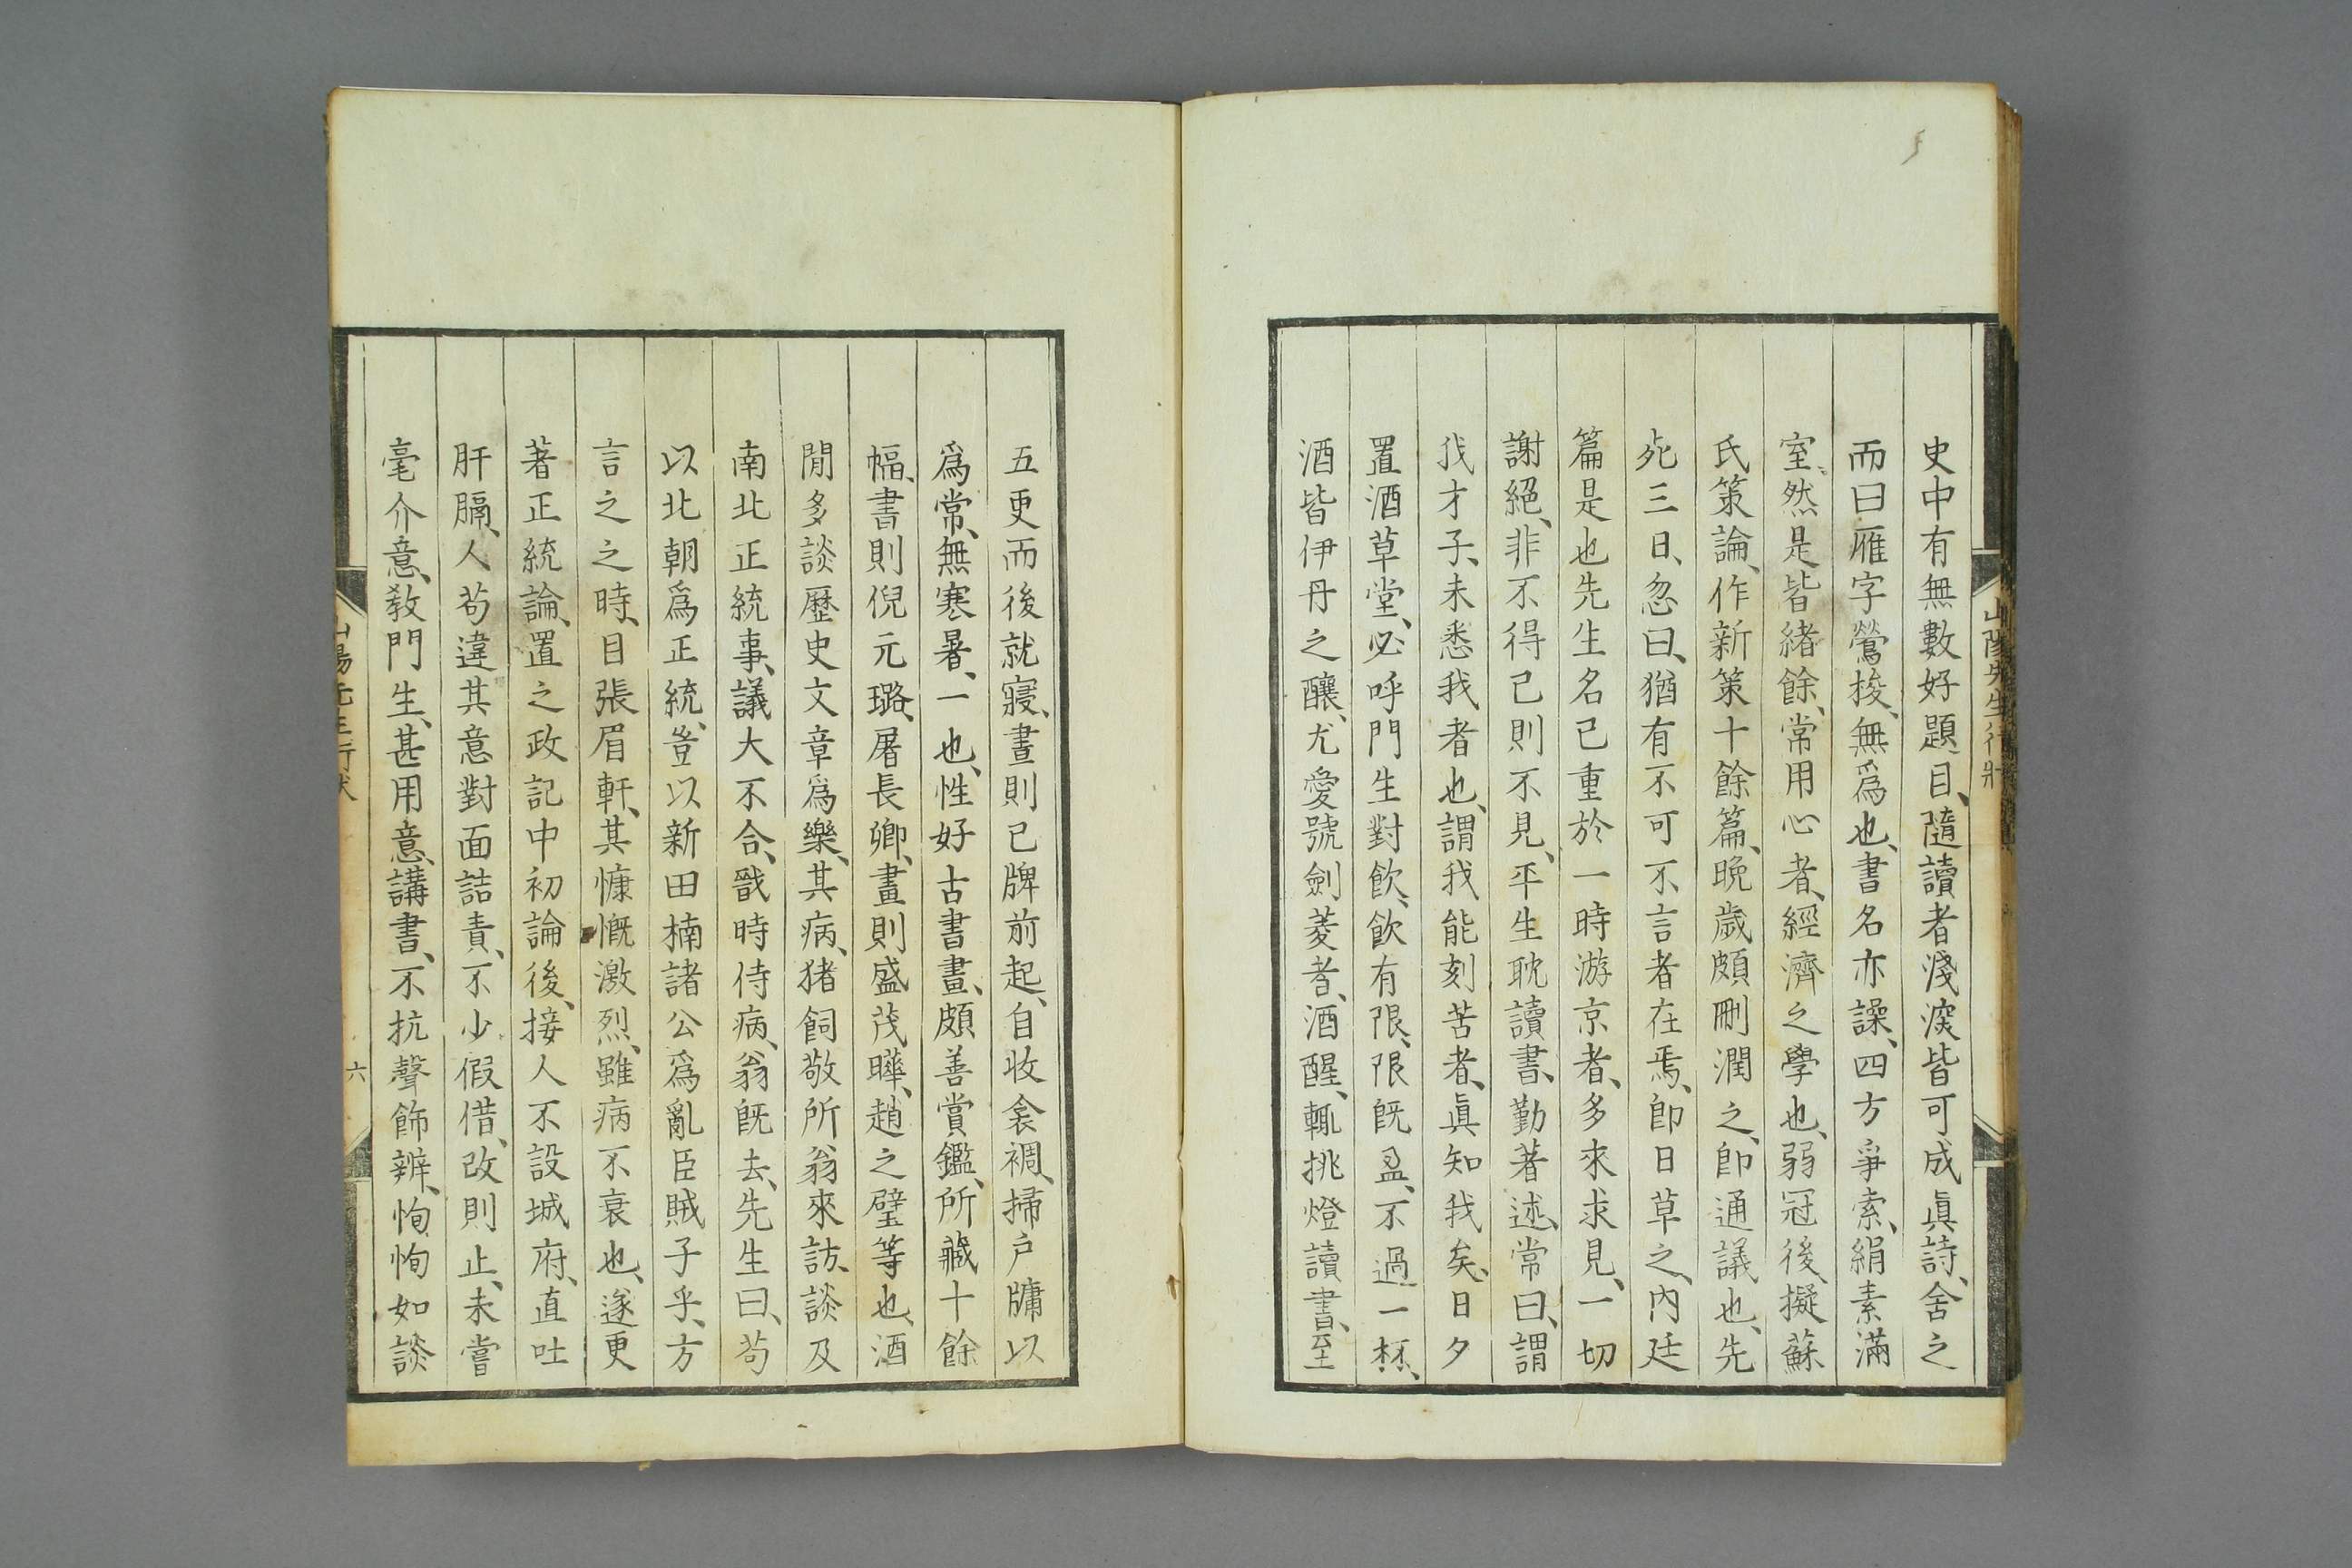 山陽先生行狀
史中有無數好題目、隨讀者淺深皆可成眞詩、舍之
而曰雁字鶯梭、無爲也、書名亦譟、四方爭索、絹素滿
室、然是皆緒餘、常用心者、經濟之學也、弱冠後、擬蘇
氏策論、作新策十餘篇、晩歲頗刪潤之、卽通議也、先
死三日、忽曰、猶有不可不言者在焉、卽日草之、內廷
篇是也先生名已重於一時游京者、多來求見、一切
謝絕、非不得已則不見、平生耽讀書、勤著述、常曰、謂
我才子、未悉我者也、謂我能刻苦者、眞知我矣、日夕
置酒草堂、必呼門生對飮、飮有限、限旣盈、不過一杯、
酒皆伊丹之釀、尤愛號劍菱者、酒醒、輒挑燈讀書、至
五更而後就寢、晝則已牌前起、自收衾裯、掃戶牖以
爲常、無寒暑、一也、性好古書畫、頗善賞鑑、所藏十餘
幅、書則倪元璐、屠長卿、畫則盛茂曄、趙之璧等也、酒
閒多談歷史文章爲樂、其病、猪飼敬所翁來訪、談及
南北正統事、議大不合、戩時侍病、翁旣去、先生曰、苟
以北朝爲正統、豈以新田楠諸公爲亂臣賊子乎、方
言之之時、目張眉軒、其慷慨激烈、雖病不衰也、遂更
著正統論、置之政記中初論後、接人不設城府、直吐
肝膈、人苟違其意對面詰責、不少假借、改則止、未嘗
毫介意、敎門生、甚用意、講書、不抗聲飾辨、恂恂如談
六